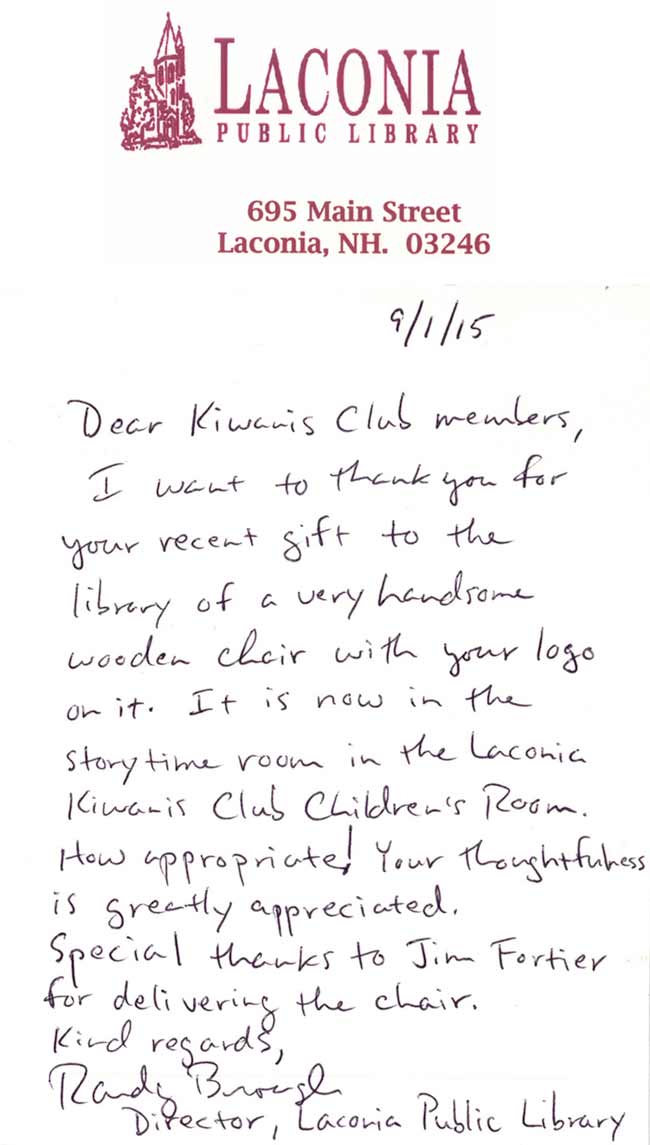 LACONIA
PUBLIC LIBRARY
695 Main Street
Laconia, NH. 03246
9/1/15
Dear Kiwanis Club members,
I want to thank you for
your recent gift to the
library of a very handsome
wooden chair with your logo
on it. It is now in the
storytime room in the Laconia
Kiwanis Club Children's Room.
How appropriate! Your thoughtfulness
is greatly appreciated.
Special thanks to Jim Fortier
for delivering the chair.
Kind regards,
Randy Brough
Director, Laconia Public Library